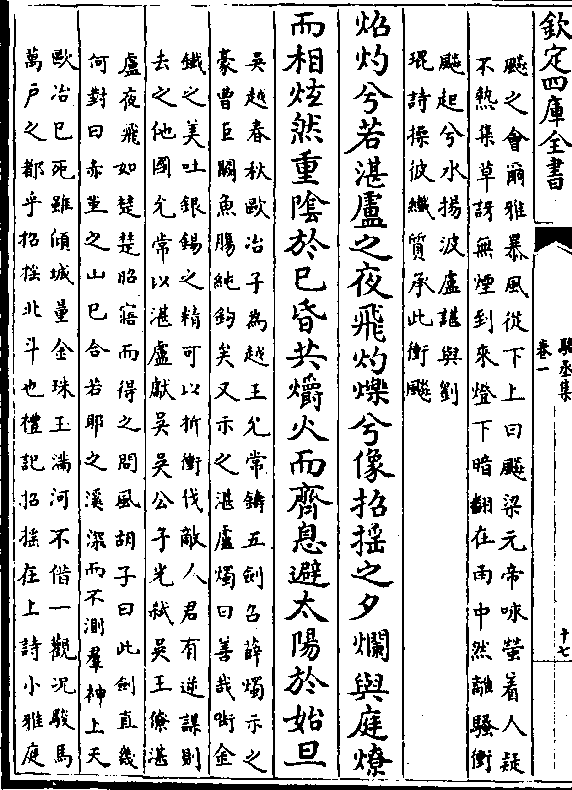 欽定四庫全書
駱丞集
卷一
十七
飈之會爾雅暴風從下上曰飈梁元帝咏螢着人疑
不熱集草訝無煙到來燈下暗翻在雨中然離騷衝
飈起兮水揚波盧諶與劉
琨詩操彼纖質承此衝飈
焰灼兮若湛盧之夜飛灼爍兮像招摇之夕爛與庭燎
而相炫然重陰於已昏共爝火而齊息避太陽於始旦
吳越春秋歐冶子為越王允常鑄五劍召薛燭示之
豪曹巨闕魚腸純鈎矣又示之湛盧燭曰善哉銜金
鐵之美吐銀錫之精可以折衝伐敵人君有逆謀則
去之他國允常以湛盧獻吳吳公子光弑吳王僚湛
盧夜飛如楚楚昭寤而得之問風胡子曰此劍直幾
何對曰赤堇之山已合若耶之溪深而不測羣神上天
歐冶已死雖傾城量金珠玉滿河不偕一觀况駿馬
萬户之都乎招摇北斗也禮記招摇在上詩小雅庭